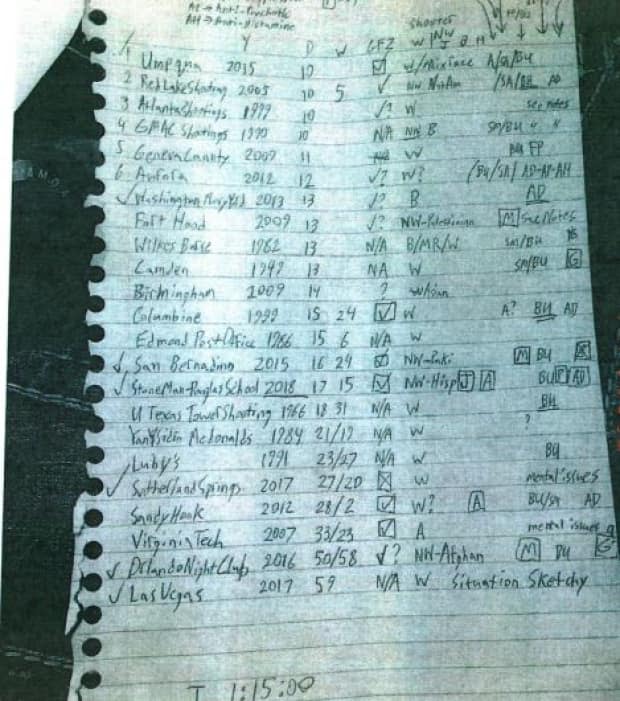 AP → Anti-Psychotic
AH → Anti-Histamine
Shooter
Y D W GFZ W NW B M
1 Umpqua 2015 10 w/mixrace A/SA/BU
2 Red Lake Shooting 2005 10 5 NW NatAm /SA/BU AD
3 Atlanta Shootings 1999 10 ? W see notes
4 GMAC Shootings 1990 10 N/A B SA/BU " "
5 Geneva County 2009 11 W FP
6 Aurora 2012 12 ? W? (BU/SA) AD-AP-AH
Washington Navy Yrd 2013 13 ? B AD
Fort Hood 2009 13 ? NW-Palestinian M See Notes
Wilkes Barre 1982 13 N/A B/MR/W SA/BU
Camden 1949 13 NA W SA/BU G
Birmingham 2009 14 ? wAsian
Columbine 1999 15 24 W A? BU AD
Edmond Post Office 1986 15 6 N/A W
San Bernadino 2015 16 24 NW-Paki M BU
StoneMan-Douglas School 2018 17 15 NW-Hisp J A BU P AD
U Texas Tower Shooting 1966 18 31 N/A W BU
San Ysidro McDonalds 1984 21/19 N/A W ?
Luby's 1991 23/27 N/A W BU
Sutherland Springs 2017 27/20 W mental issues
Sandy Hook 2012 28/2 W? A BU/SA AD
Virginia Tech 2007 33/23 A mental issues
Orlando Night Club 2016 50/58 ? NW-Afghan M BU G
Las Vegas 2017 59 N/A W Situation Sketchy
I 1:15:00